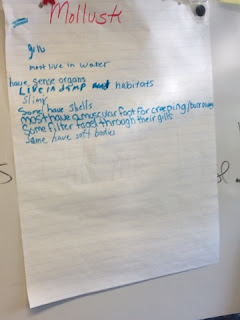 Mollusk
gills
most live in water
have sense organs
Live in damp habitats
slimy
some have shells
most have a muscular foot for creeping/burrowing
Some filter food through their gills
Some have soft bodies